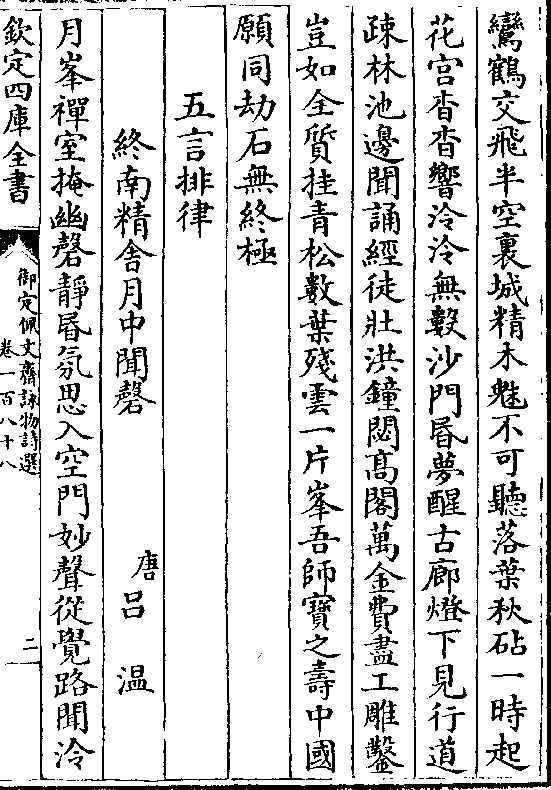 鸞鶴交飛半空裏城精木魅不可聽落葉秋砧一時起
花宫杳杳響泠泠無數沙門昏夢醒古廊燈下見行道
疎林池邊聞誦經徒壯洪鐘閟高閣萬金費盡工雕鑿
豈如全質挂青松數葉殘雲一片峯吾師寶之壽中國
願同劫石無終極
五言排律
終南精舎月中聞磬
唐吕温
月峯禪室掩幽磬靜昏氛思入空門妙聲從覺路聞泠
欽定四庫全書
御定佩文齋詠物詩選
卷一百八十八
二